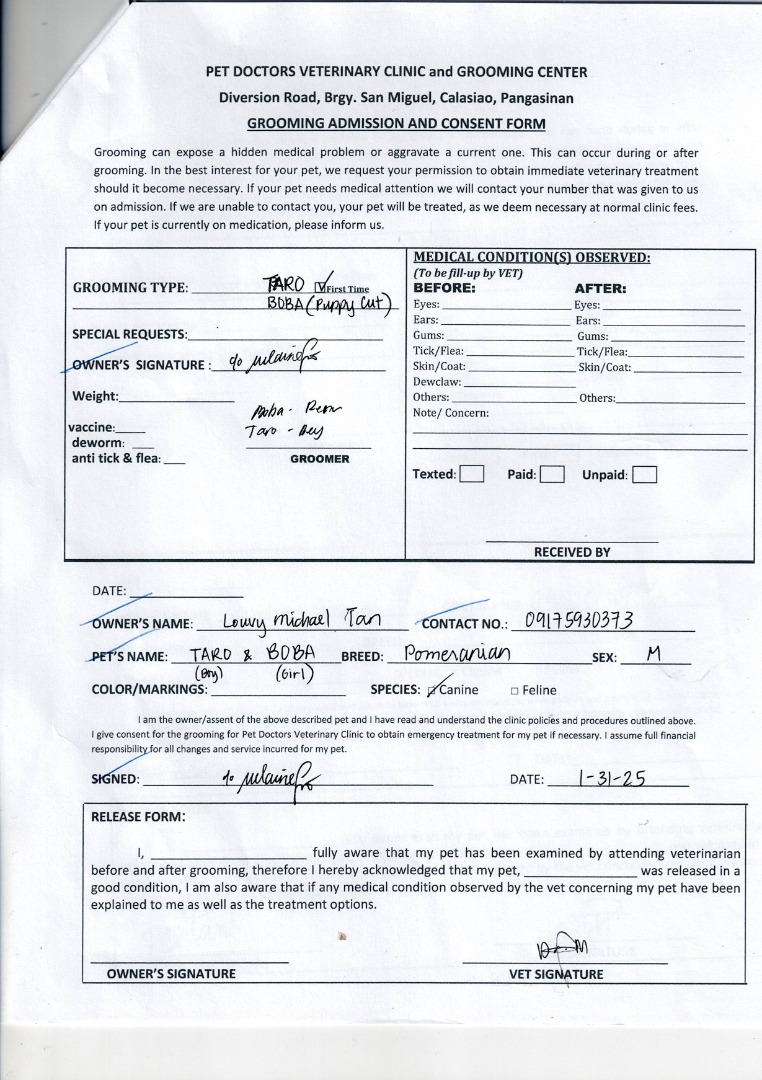 PET DOCTORS VETERINARY CLINIC and GROOMING CENTER
Diversion Road, Brgy. San Miguel, Calasiao, Pangasinan
GROOMING ADMISSION AND CONSENT FORM
Grooming can expose a hidden medical problem or aggravate a current one. This can occur during or after
grooming. In the best interest for your pet, we request your permission to obtain immediate veterinary treatment
should it become necessary. If your pet needs medical attention we will contact your number that was given to us
on admission. If we are unable to contact you, your pet will be treated, as we deem necessary at normal clinic fees.
If your pet is currently on medication, please inform us.
GROOMING TYPE: TARO First Time
BOBA (Puppy Cut)
SPECIAL REQUESTS:
OWNER'S SIGNATURE : c/o
Weight:
Boba -
vaccine: Taro -
deworm:
anti tick & flea: GROOMER
MEDICAL CONDITION(S) OBSERVED:
(To be fill-up by VET)
BEFORE: AFTER:
Eyes: Eyes:
Ears: Ears:
Gums: Gums:
Tick/Flea: Tick/Flea:
Skin/Coat: Skin/Coat:
Dewclaw:
Others: Others:
Note/ Concern:
Texted: Paid: Unpaid:
RECEIVED BY
DATE:
OWNER'S NAME: Louvy Michael Tan CONTACT NO.: 09175930373
PET'S NAME: TARO & BOBA BREED: Pomeranian SEX: M
(Boy) (Girl)
COLOR/MARKINGS: SPECIES: Canine Feline
I am the owner/assent of the above described pet and I have read and understand the clinic policies and procedures outlined above.
I give consent for the grooming for Pet Doctors Veterinary Clinic to obtain emergency treatment for my pet if necessary. I assume full financial
responsibility for all changes and service incurred for my pet.
SIGNED: c/o DATE: 1-31-25
RELEASE FORM:
I, fully aware that my pet has been examined by attending veterinarian
before and after grooming, therefore I hereby acknowledged that my pet, was released in a
good condition, I am also aware that if any medical condition observed by the vet concerning my pet have been
explained to me as well as the treatment options.
OWNER'S SIGNATURE VET SIGNATURE